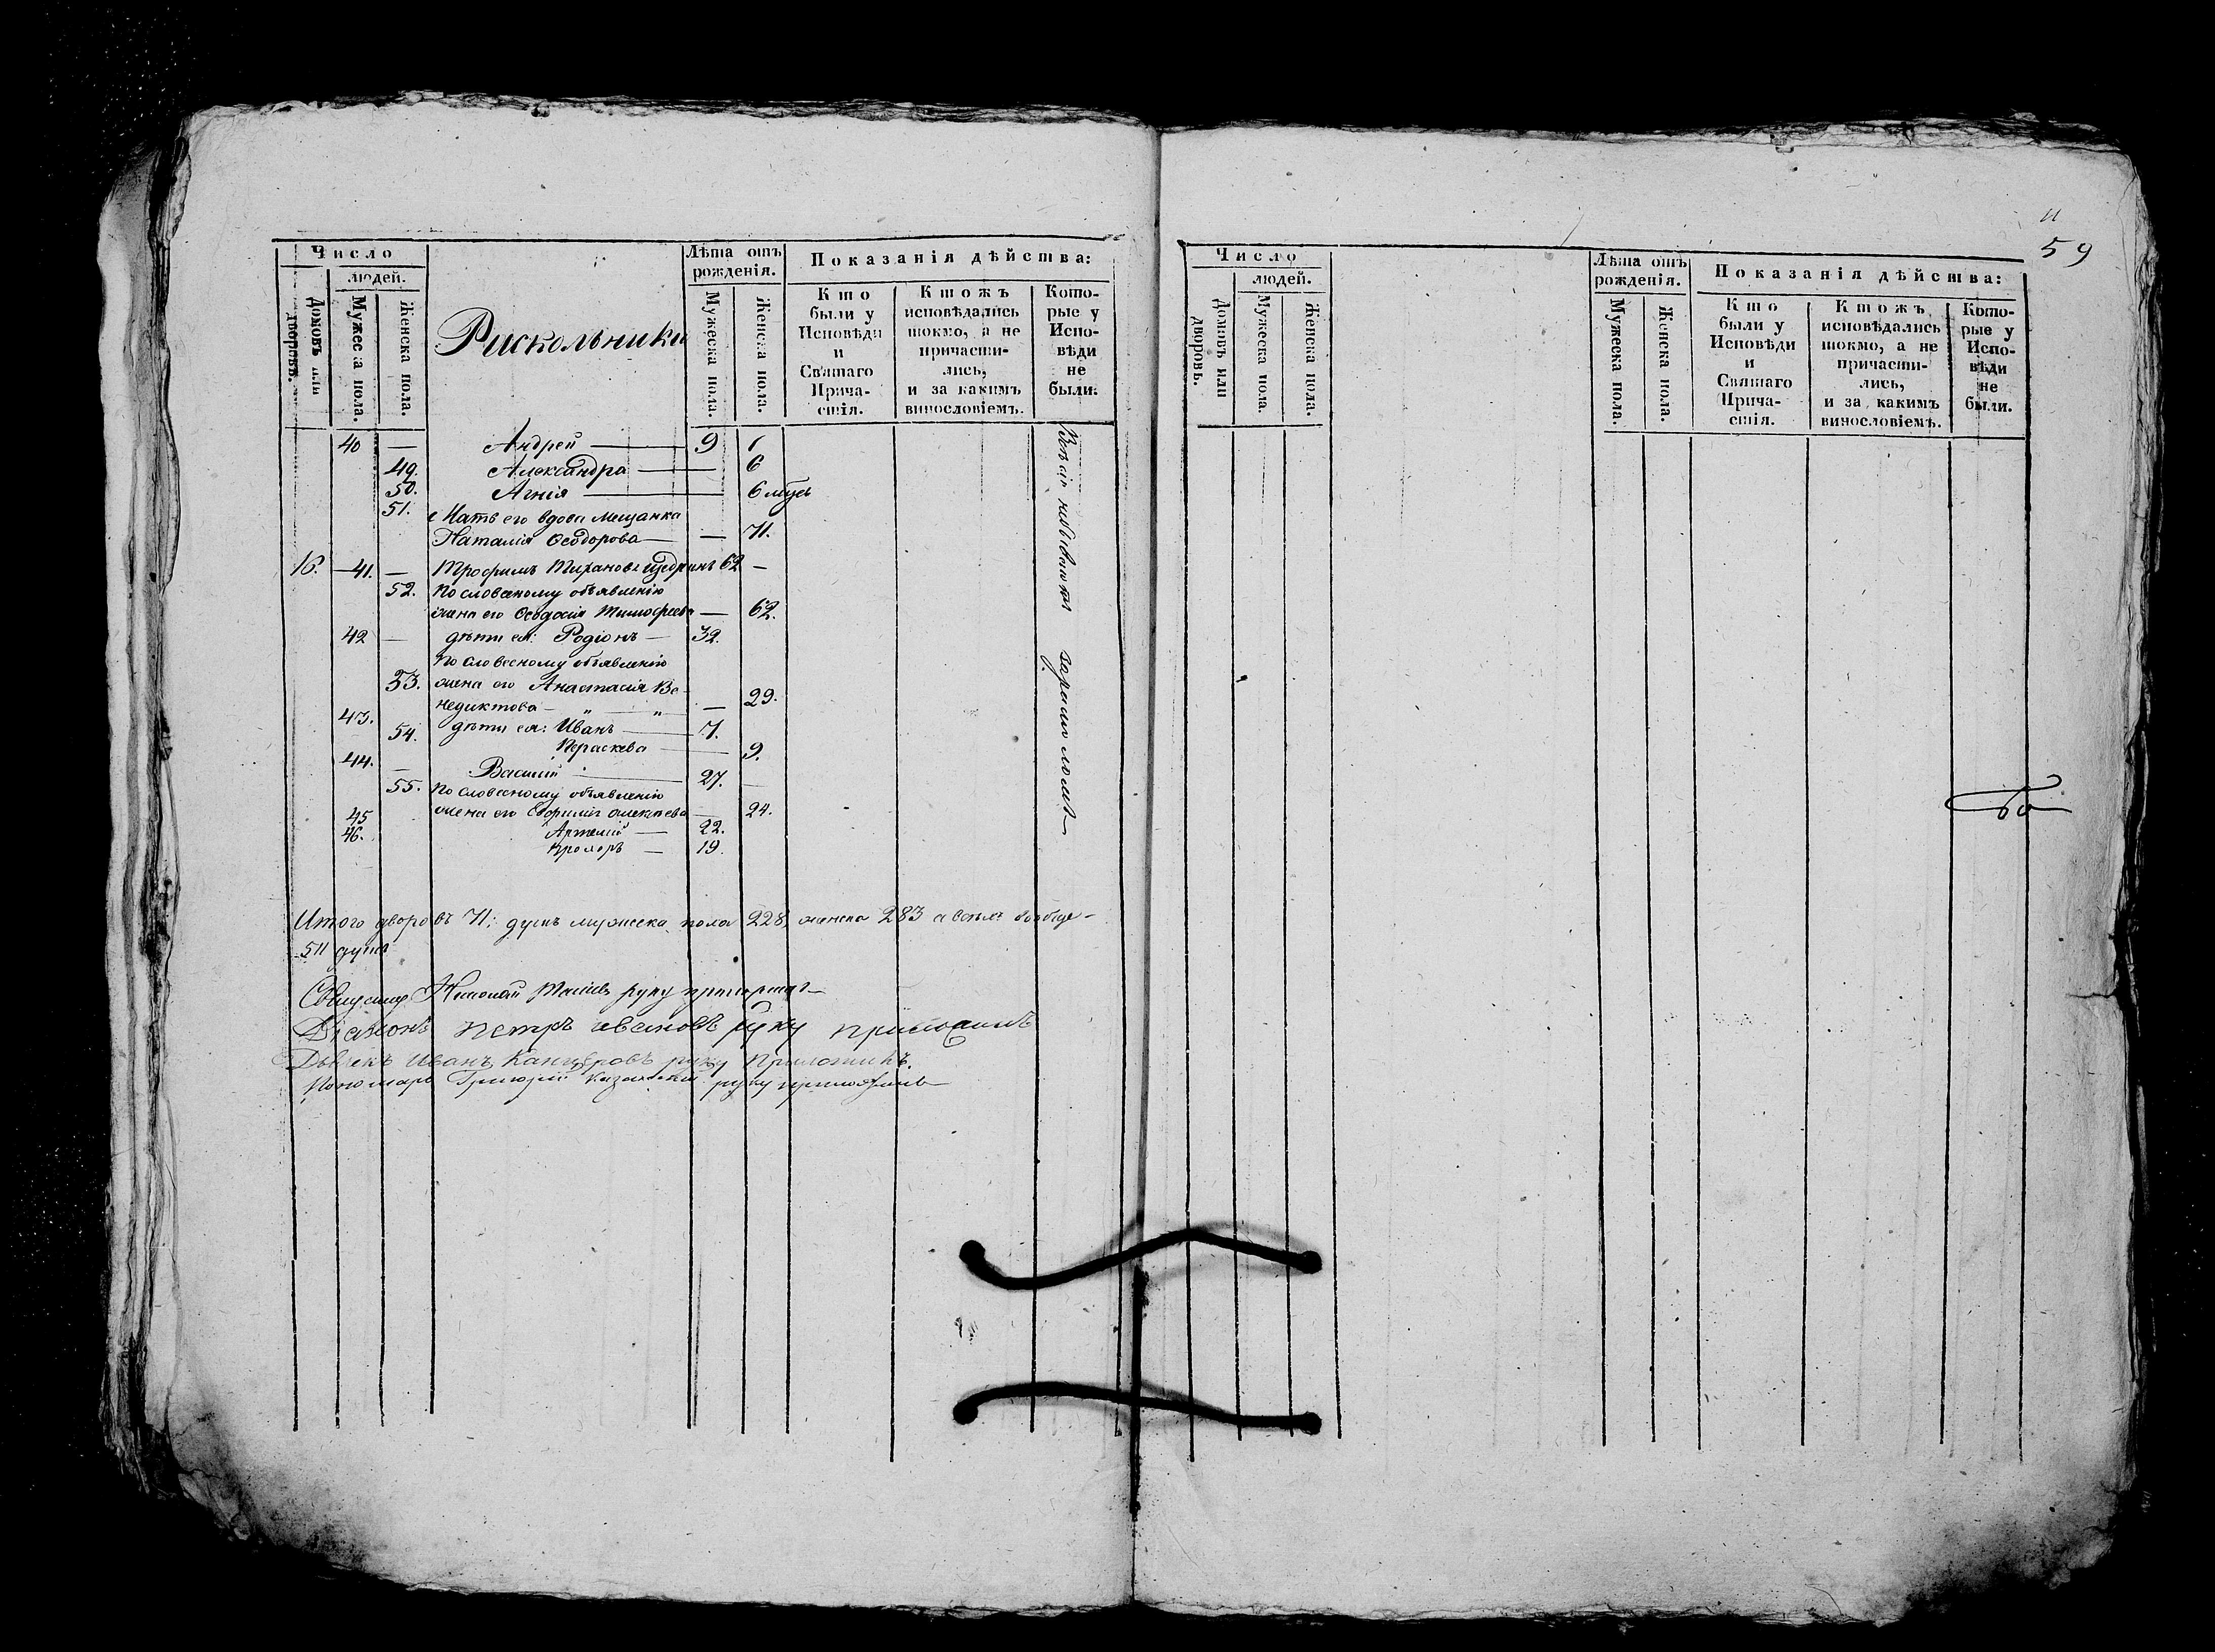 Число
людей.
Домовъ или дворовъ.
Мужеска пола.
Женска пола.
Раскольники
Лѣта отъ
рожденія.
Мужеска пола.
Женска пола.
Показанія дѣйства:
Кто
были у
Исповѣди
и
Святаго
Прича-
стія.
Ктожъ
исповѣдались
токмо, а не
причасти-
лись,
и за какимъ
винословіемъ.
Кото-
рые у
Испо-
вѣди
не
были.
40 — Андрей — 9
49. Александра — 6
50. Агнія — 6 мѣсе
51. Мать его вдова мещанка
Наталія Ѳеодорова — — 71.
16. — 41. — Трофимъ Щедринъ 62 —
52. По словесному объявленію
жена его Ѳеодосія Тимофеева — 62.
42 — дѣти ея: Родіонъ — 32.
По словесному объявленію
53. жена его Анастасія Ве-
недиктова — „ — „ — 29.
43. дѣти ея: Иванъ — 7.
54. Параскева — 9.
44. — Василій — 27. —
55. По словесному объявленію
жена его Алексѣева — 24.
45 Артемій — 22.
46. — 19.
Всѣ сіи
Итого дворовъ 71; душъ мужеска пола 228, женска 283 а всѣхъ вообще —
511 душъ
Священникъ Николай руку приложилъ
Діаконъ Петръ Ивановъ руку приложилъ
Дьячекъ Иванъ руку приложилъ.
Пономарь Григорій Казанскій руку приложилъ
59
Число
людей.
Домовъ или дворовъ.
Мужеска пола.
Женска пола.
Лѣта отъ
рожденія.
Мужеска пола.
Женска пола.
Показанія дѣйства:
Кто
были у
Исповѣди
и
Святаго
Прича-
стія.
Ктожъ
исповѣдались
токмо, а не
причасти-
лись,
и за какимъ
винословіемъ.
Кото-
рые у
Испо-
вѣди
не
были.